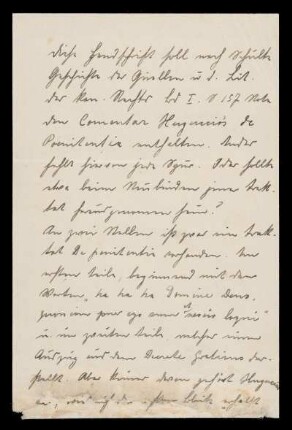 diese Handschrift soll nach Schulte
Geschichte der Quellen u. d. Lit.
der kan. Rechts Bd I. S. 157 Note
den Comentar Huguccios de
Poenitentia enthalten. Leider
fehlt hievon jede Spur. Oder sollte
etwa beim Neubinden jener Trak-
tat herausgenommen sein?
An zwei Stellen ist zwar ein Trak-
tat De penitentia vorhanden. Im
ersten Teile, beginnend mit den
Worten, ha ha ha Domine Deus,
quoniam puer ego sum et nescio loqui"
u. im zweiten Teile welcher einen
Auszug aus dem Decrete Gratians dar-
stellt. Aber keiner davon gehört Huguccio
an, erhellt